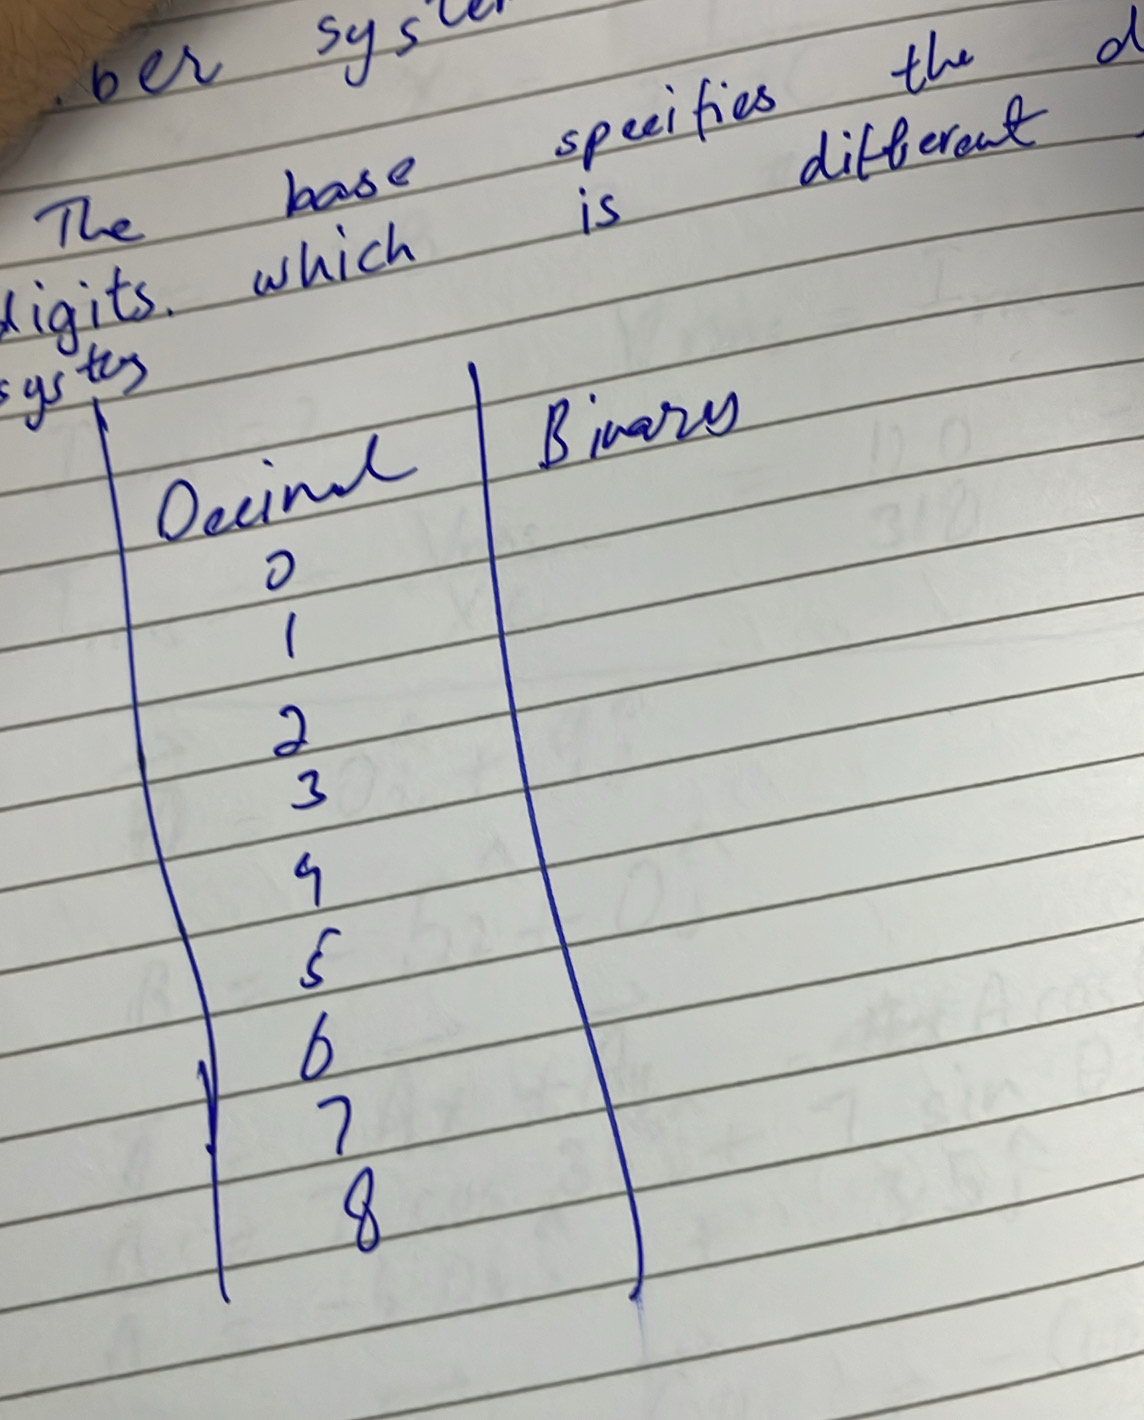 ber syste
The base specifies the d
digits. which is different
system
Decimal Binary
0
1
2
3
4
5
6
7
8